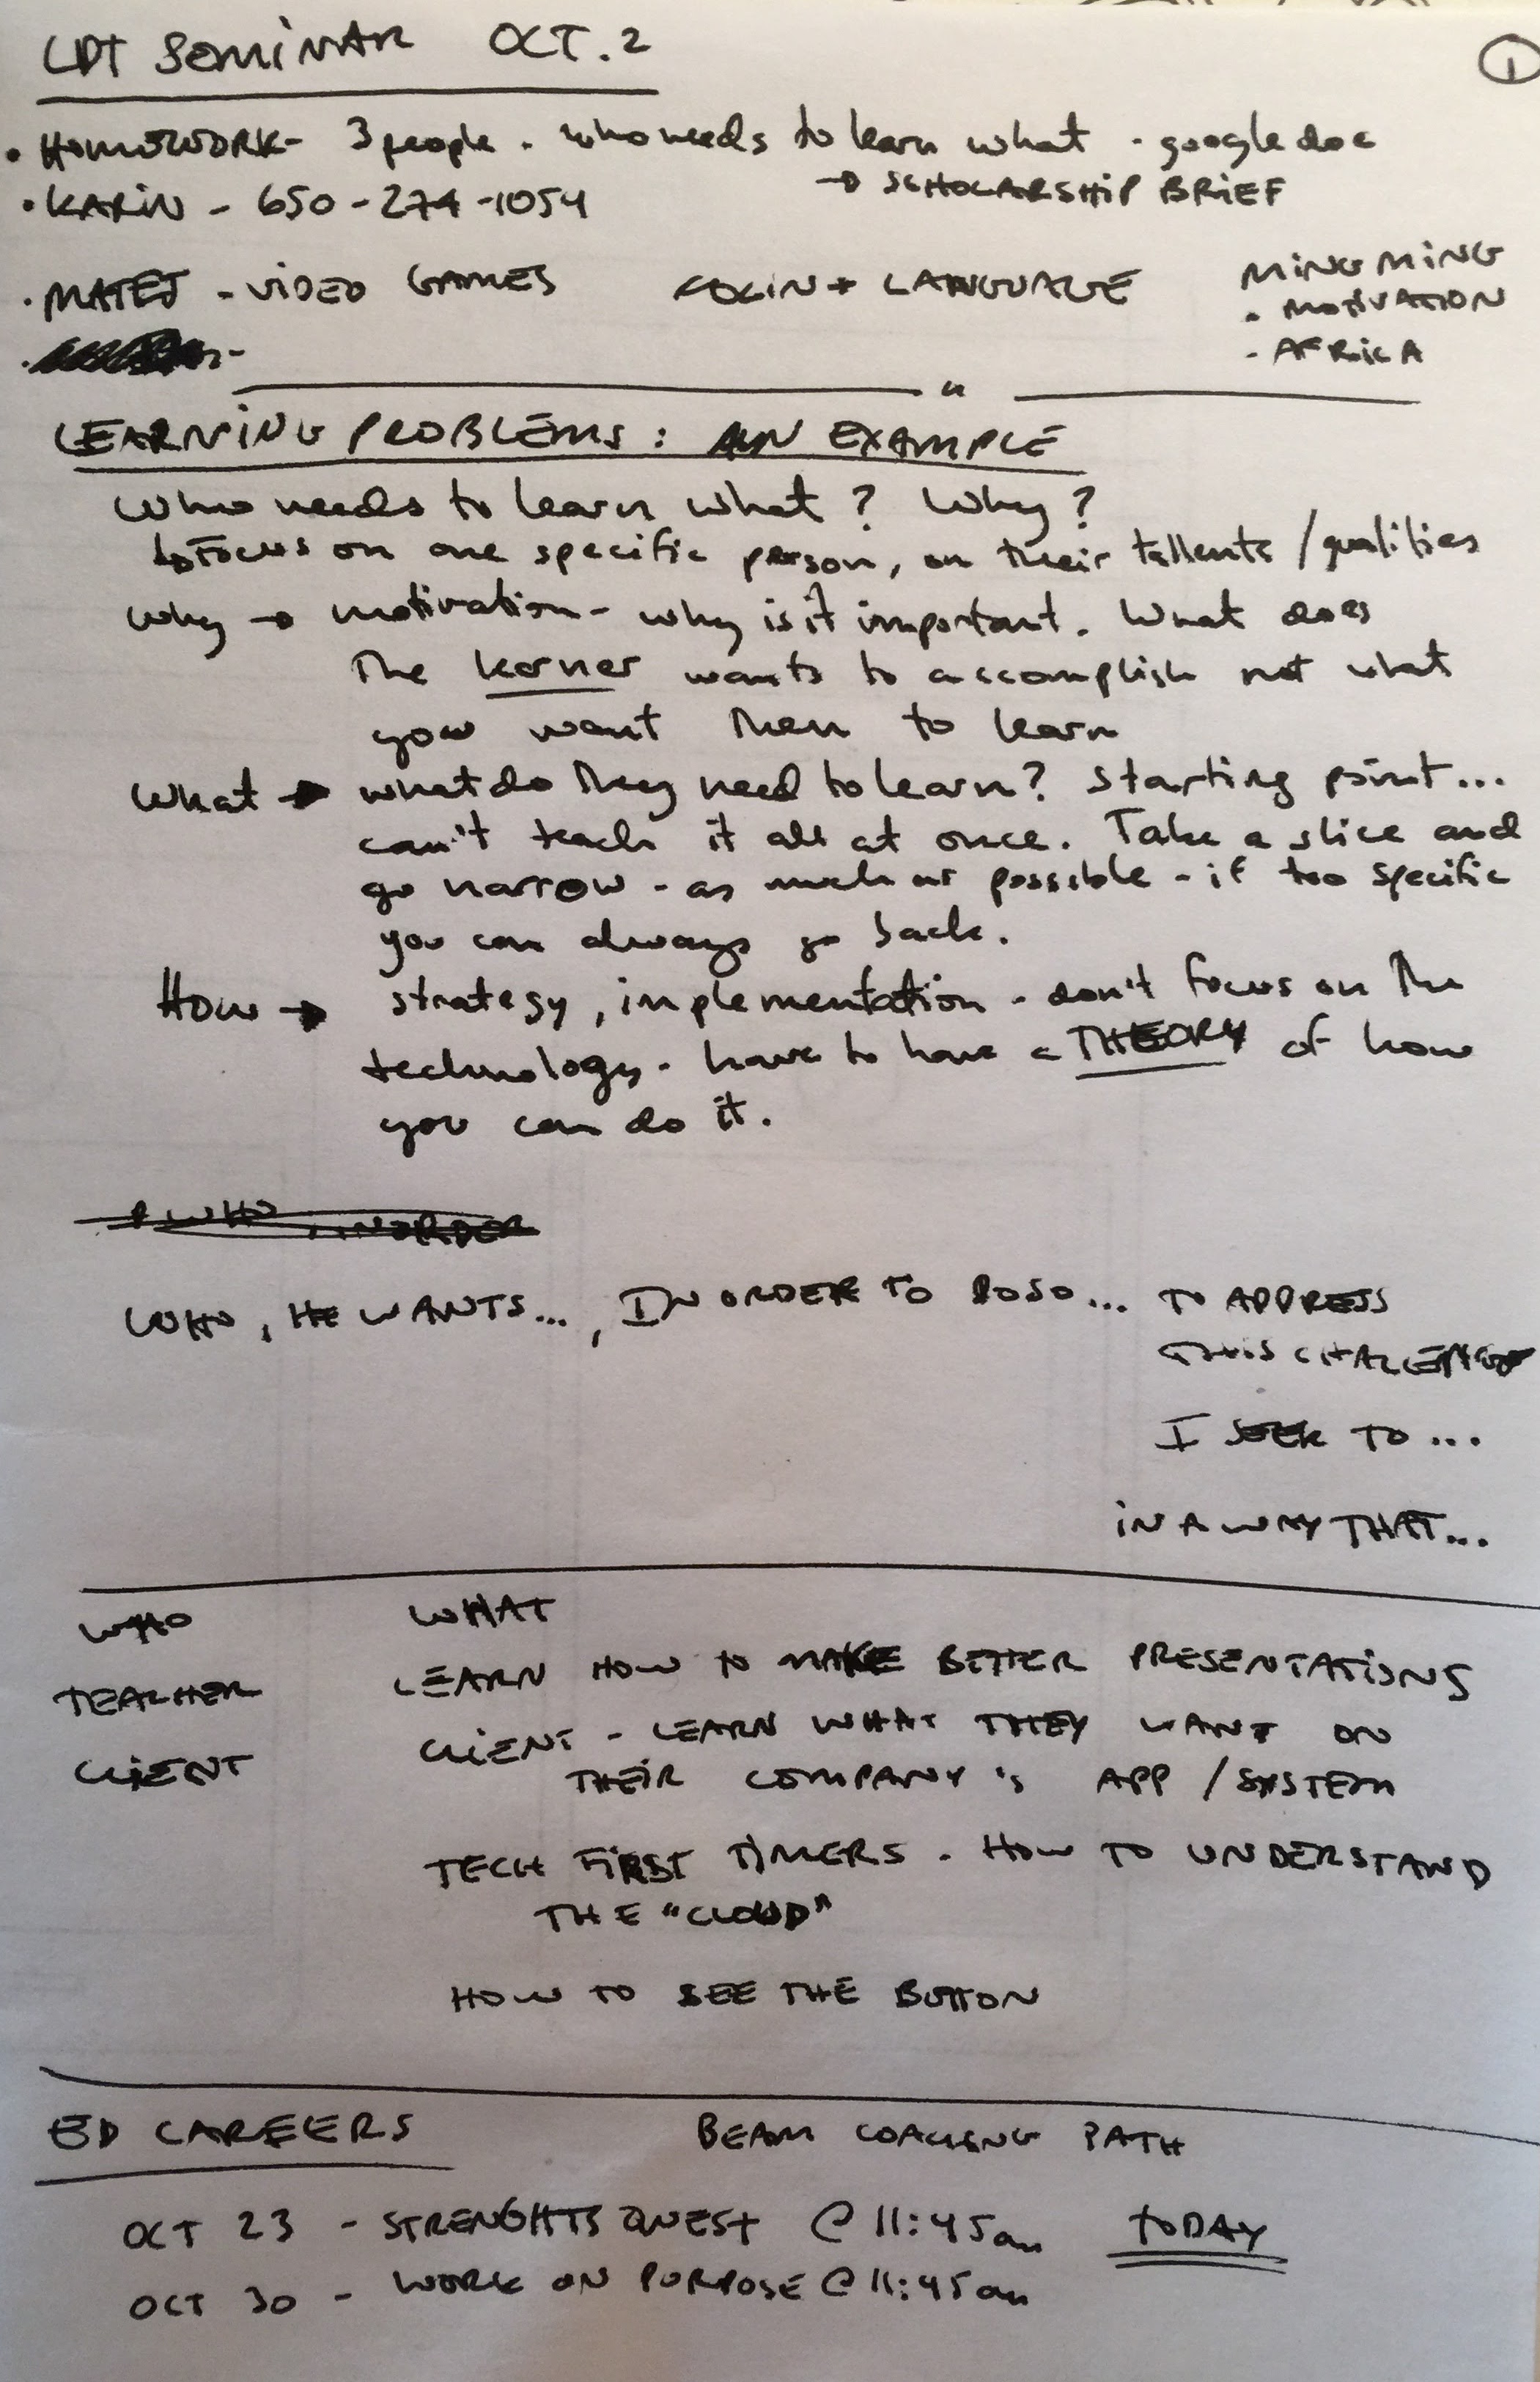 LDT SEMINAR OCT. 2
①
• HOMEWORK - 3 people . who needs to learn what . google doc
→ SCHOLARSHIP BRIEF
• KARIN - 650-274-1054
• MATEJ - VIDEO GAMES COLIN + LANGUAGE MING MING
• MOTIVATION
- AFRICA
LEARNING PROBLEMS : AN EXAMPLE
Who needs to learn what ? Why ?
↳ Focus on one specific person, on their tallents / qualities
Why → motivation - why is it important. What does
the lerner wants to accomplish not what
you want them to learn
What → what do they need to learn? Starting point...
can't teach it all at once. Take a slice and
go narrow - as much as possible - if too specific
you can always go back.
How → strategy, implementation - don't focus on the
technology. have to have a THEORY of how
you can do it.
WHO IN ORDER
WHO, HE WANTS..., IN ORDER TO DO SO... TO ADDRESS
THIS CHALLENGE
I SEEK TO ...
IN A WAY THAT...
WHO WHAT
TEACHER LEARN HOW TO MAKE BETTER PRESENTATIONS
CLIENT CLIENT - LEARN WHAT THEY WANT ON
THEIR COMPANY'S APP / SYSTEM
TECH FIRST TIMERS . HOW TO UNDERSTAND
THE "CLOUD"
HOW TO SEE THE BUTTON
ED CAREERS BEAM COACHING PATH
OCT 23 - STRENGHTS QUEST @ 11:45am TODAY
OCT 30 - WORK ON PURPOSE @ 11:45am